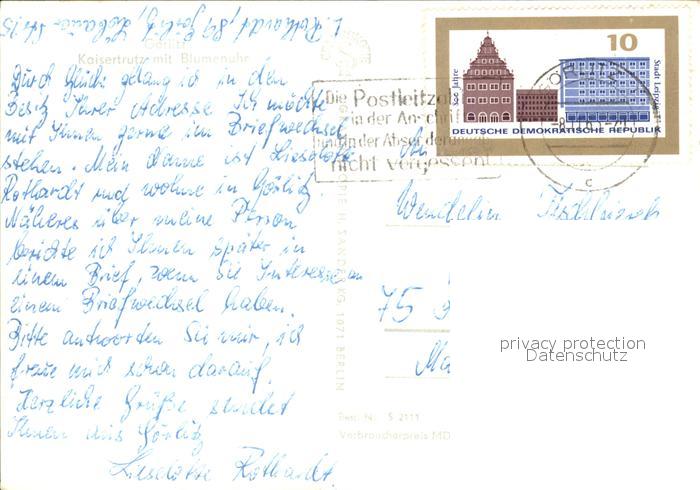 L. Rothardt, 89 Görlitz, Löbauer Str. 15
Görlitz
Kaisertrutz mit Blumenuhr
Durch Glück gelang ich in den
Besitz Ihrer Adresse. Ich möchte
mit Ihnen gerne im Briefwechsel
stehen. Mein Name ist Lieselotte
Rothardt und wohne in Görlitz.
Näheres über meine Person
berichte ich Ihnen später in
einem Brief, wenn Sie Interesse an
einem Briefwechsel haben.
Bitte antworten Sie mir, ich
freue mich schon darauf.
Herzliche Grüße sendet
Ihnen aus Görlitz
Lieselotte Rothardt.
10
800 Jahre
Stadt Leipzig
DEUTSCHE DEMOKRATISCHE REPUBLIK
Die Postleitzahl
in der Anschrift
und in der Absenderangabe
nicht vergessen!
GÖRLITZ
c
An
Wendelin
75
Ma
H. SANDER KG, 1071 BERLIN
Best. Nr. S 2111
Verbraucherpreis MD
privacy protection
Datenschutz